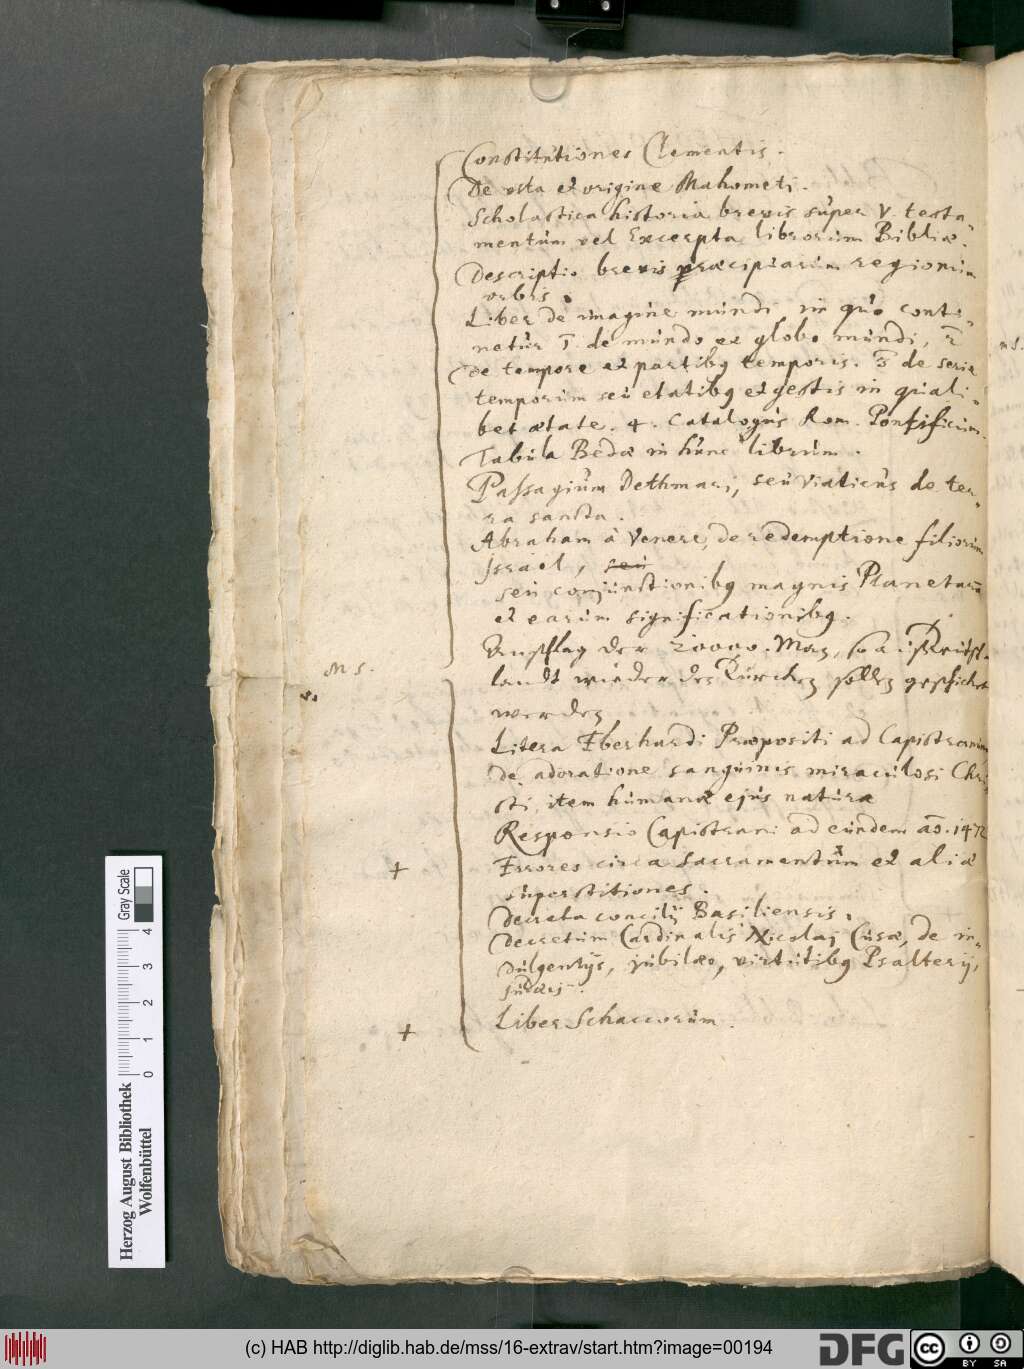 Constitutiones Clementis.
De vita et origine Mahometi.
Scholastica historia brevis super V. testa-
mentum vel Excerpta librorum Bibliæ.
Descriptio brevis præcipuarum regionum
orbis.
Liber de imagine mundi, in quo conti-
netur 1. de mundo et globo mundi, 2.
de tempore et partibq temporis. 3 de serie
temporum seu etatibq et gestis in quali-
bet ætate. 4. Catalogus Rom. Pontificum.
Tabula Bedæ in hunc librum.
Passagium Dethmari, seu Viaticus de ter-
ra sancta.
Abraham à Venere, de redemptione filiorum
Israel, seu
seu conjunctionibq magnis Planetarū
et earum significationibq.
Anschlag der 20000. Man, so auß Teutsch-
M S.
landt wieder die Türcken sollen geschicket
werden
Litera Eberhardi Præpositi ad Capistranum
de adoratione sanguinis miraculosi Chri
sti item humanæ ejus naturæ
Responsio Capistrani ad eundem aō. 1472
+ Errores circa sacramentum et aliæ
superstitiones.
Decreta concilij Basiliensis.
Decretum Cardinalis Nicolaj Cusæ, de in-
dulgentijs, jubilæo, virtutibq Psalterij,
judæis.
+ Liber Schaccorum.
m S.
Gray Scale
0 1 2 3 4
Herzog August Bibliothek
Wolfenbüttel
(c) HAB http://diglib.hab.de/mss/16-extrav/start.htm?image=00194
DFG
cc BY SA